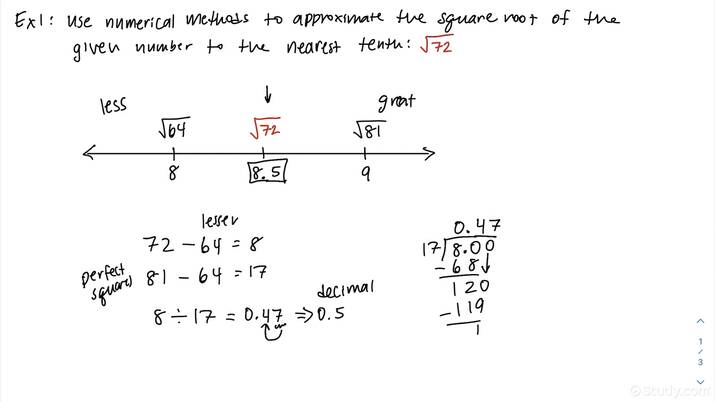 Ex1: Use numerical methods to approximate the square root of the
given number to the nearest tenth: √72
less great
√64 √72 √81
8 8.5 9
lesser
72 - 64 = 8
perfect
squares 81 - 64 = 17
decimal
8 ÷ 17 = 0.47 ⇒ 0.5
0.47
17/8.00
-68↓
120
-119
1
1
/
3
©Study.com